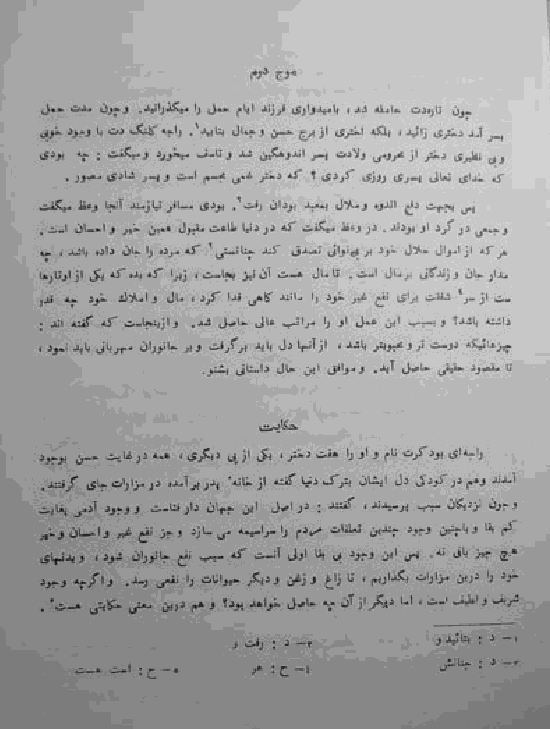 موج دوم
چون تارهدت حامله شد، بامیدواری فرزند ایام حمل را میگذرانید. وچون مدت حمل
بسر آمد دختری زائید، بلکه اختری از برج حسن وجمال بتابید¹. راجه کلنگ دت با وجود خوبی
وبی نظیری دختر از محرومی ولادت پسر اندوهگین شد و تاسف میخورد و میگفت: چه بودی
که خدای تعالی پسری روزی کردی؟ که دختر غمی مجسم است و پسر شادی مصور.
پس بجهت دفع اندوه و ملال بمعبد بودان رفت². بودی مسافر نیازمند آنجا وعظ میگفت
وجمعی در گرد او بودند. در وعظ میگفت که در دنیا طاعت مقبول همین خیر و احسان است.
هر که از اموال حلال خود بر بی‌نوائی تصدق کند چنانستی³ که مرده را جان داده باشد، چه
مدار جان و زندگانی بر مال است. تا مال هست آن نیز بجاست، زیرا که بده که یکی از اوتارها
ست از سر⁴ شفقت برای نفع غیر خود را مانند کاهی فدا کرد، مال و املاک خود چه قدر
داشته باشد؟ و بسبب این عمل او را مراتب عالی حاصل شد. و ازینجاست که گفته اند:
چیزهائیکه دوست تر و محبوبتر باشد، از آنها دل باید برگرفت و بر جانوران مهربانی باید نمود،
تا مقصود حقیقی حاصل آید. و موافق این حال داستانی بشنو.
حکایت
راجه‌ای بود کرت نام و او را هفت دختر، یکی از پی دیگری، همه در غایت حسن بوجود
آمدند وهم در کودکی دل ایشان بترک دنیا گفته از خانه پدر برآمده در مزارات جای گرفتند.
وچون نزدیکان سبب پرسیدند، گفتند: در اصل این جهان دار فناست و وجود آدمی بغایت
کم بقا و باچنین وجود چندین تعلقات مردم را سراسیمه می سازد و جز نفع غیر و احسان وخیر
هیچ چیز باقی نه. پس این وجود بی بقا اولی آنست که سبب نفع جانوران شود، و بدنهای
خود را درین مزارات بگذاریم، تا زاغ و زغن و دیگر حیوانات را نفعی رسد. و اگرچه وجود
شریف و لطیف است، اما دیگر از آن چه حاصل خواهد بود؟ و هم درین معنی حکایتی هست⁵.
۱- د: بتائید و ۲- د: رفت و
۳- د: چنانش ۴- ح: هر ۵- ح: است هست